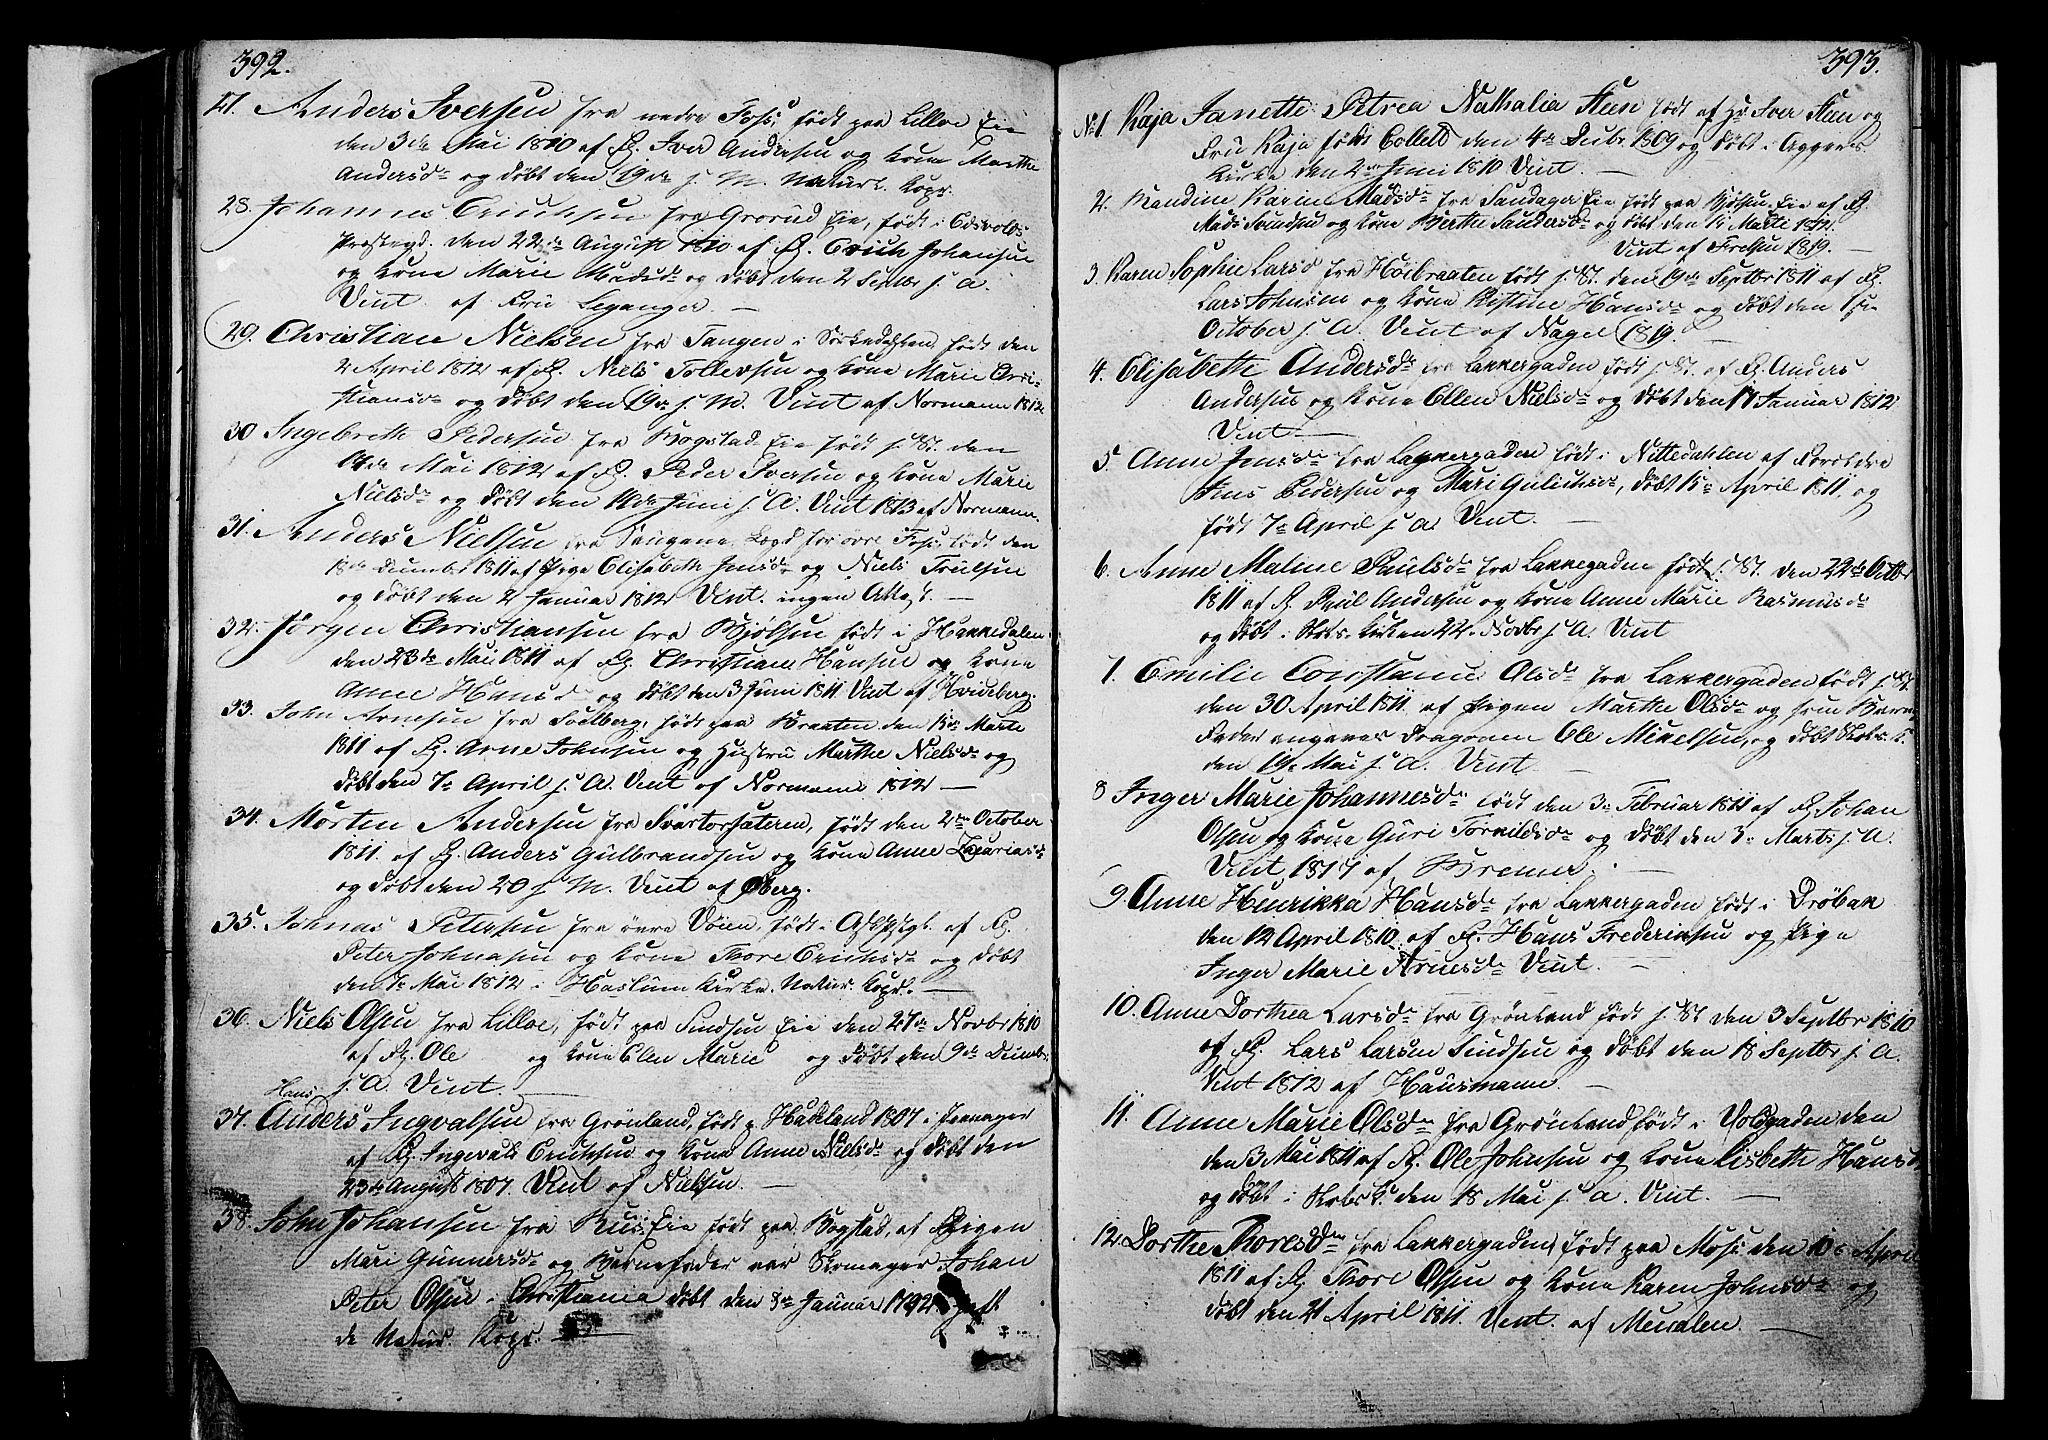 392.
27. Anders Iversen fra nedre Foss, født paa Lilloe Eie
den 3de Mai 1810 af F. Iver Andersen og Kone Marthe
Andersdr og døbt den 19de s. M. Naturl. Kopr.
28. Johannes Erichsen fra Grorud Eie, født i Edsvolds
Præstegd. den 22de August 1810 af F. Erich Johansen
og Kone Marie Madsdr og døbt den 2 Septbr s. A.
Vint. af Fru Leganger. —
29. Christian Nielsen fra Tangen i Sørkedahlen født den
2 April 1812 af F. Niels Tollevsen og Kone Marie Chri-
stiansdr og døbt den 19de s. M. Vint af Normann 1812
30 Ingebreth Pedersen fra Bogstad Eie født s. St. den
17de Mai 1812 af F. Peder Iversen og Kone Marie
Nielsdr og døbt den Juni s. A. Vint 1813 af Normann.
31. Anders Nielsen fra Saugene Lægd for øvre Foss, født den
18de December 1811 af Pige Elisabeth Jensdr og Niels Truelsen
og døbt den 2 Januar 1812 Vint. ingen Attest. —
32. Jørgen Christiansen fra Bjølsen født i Hakkedalen
den 23de Mai 1811 af F. Christian Hansen og Kone
Anne Hansd og døbt den 3 Juni 1811 Vint af Hvideberg.
33. John Arnesen fra født paa Braaten den 15de Marts
1811 af F. Arne Johnsen og Hustru Marthe Nielsdr og
døbt den 7de April s. A. Vint af Normann 1812 —
34. Morten Andersen fra Svartorsæteren, født den 2den October
1811. af F. Anders Gulbrandsen og Kone Anne Zacariasdr
og døbt den 20 s. M. Vint af Øberg.
35. Johnas Petersen fra øvre Vøien, født i af F.
Peter Johnasen og Kone Thore Erichsdr og døbt
den 7de Mai 1812 i Haslum Kirke. Natur. Kopr. —
36. Niels Olsen fra Lilloe, født paa Sindsen Eie den 27de Novbr 1810
af F. Ole og Kone Elen Marie og døbt den 9de Decembr
s. A. Vint. —
Hans
37. Anders Ingvalsen fra Grønland, født p. Hadeland 1807 i
af F. Ingevald Erichsen og Kone Anne Nielsdr og døbt den
23de August 1807. Vint af Nielsen. —
38. John Johansen fra Ruus Eie født paa Bogstad, af Pigen
Mari Gunnersdr og Barnefader var Skomager Johan
Peter Olsen i Christiania døbt den 8de Januar 1792
de Natur. Kopr. —
393.
No 1. Kaja Janette Petrea Nathalia Steen født af Hr Iver Steen og
Frue Kaja født Collett den 4de Decbr. 1809 og døbt i Aggers
Kirke den 2den Juni 1810 Vint. —
2. Randine Karine Madsdr fra Sandager Eie født paa Bjølsen Eie af F.
Mads Svendsen og Kone Berthe Sandersdr og døbt den 15 Marti 1812.
Vint af Frelsen 1819. —
3. Karen Sophie Larsd fra Høibraaten født s. St. den 19de Septbr 1811 af F.
Lars Johnsen og Kone Kistine Hansdr og døbt den 1ste
October s. A. Vint af Nagel 1819. —
4. Elisabeth Andersdr fra Lakkergaden født s. St. af F. Anders
Andersen og Kone Ellen Nielsdr og døbt den 17 Januar 1812
Vint. —
5. Anne Jensdr fra Lakkergaden født i Nittedahlen af Forældre
Jens Pedersen og Mari Gulichsdr, døbt 15de April 1811, og
født 7de April s. A. Vint. —
6. Anne Maline Poulsdr fra Lakkegaden født s. St. den 22de Octbr
1811 af F. Poul Andersen og Kone Anne Marie Rasmusdr
og døbt i Slots-Kirken 22. Novbr s. A. Vint
7. Emilie Constance Olsdr fra Lakkergaden født s. St.
den 30 April 1811. af Pigen Marthe Olsdr og som Barne
Fader angaves Dragonen Ole Mikelsen, og døbt Slots. K.
den 19de Mai s. A. Vint. —
8 Inger Marie Johannesdr født den 3de Februar 1811 af F. Johan
Olsen og Kone Guri Torkildsdr og døbt den 3de Marts s. A.
Vint. 1817 af Bremer. —
9. Anne Henrikka Hansdr fra Lakkergaden født i Drøbak
den 12 April 1810. af F. Hans Frederiksen og Pige
Inger Marie Arnesdr Vint. —
10. Anne Dorthea Larsdr fra Grønland født s. St den 3 Septbr 1810
af F. Lars Larsen Sindsen og døbt den 18 Septbr s. A.
Vint 1812 af Hausmann. —
11. Anne Marie Olsdr fra Grønland født i Voldgaden den
den 3 Mai 1811 af F. Ole Johnsen og Kone Lisbeth Hansd
og døbt i Slots K. den 18 Mai s. A. Vint. —
12 Dorthe Thoresdr fra Lakkergaden født paa Moss den 10de April
1811 af F. Thore Olsen og Kone Karen Johnsdr og
døbt den 21 April 1811. Vint. af —